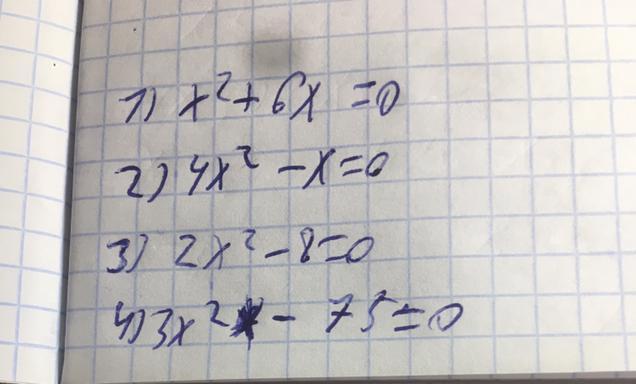 1) x² + 6x = 0
2) 4x² - x = 0
3) 2x² - 8 = 0
4) 3x² - 75 = 0